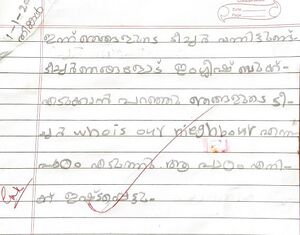 1-1-20
തിങ്കൾ
ഇന്ന് ഞങ്ങളുടെ ടീച്ചർ വന്നിട്ടുണ്ട്.
ടീച്ചർ ഞങ്ങളോട് ഇംഗ്ലീഷ് ബുക്ക്
എടുക്കാൻ പറഞ്ഞു ഞങ്ങളുടെ ടീ
ച്ചർ whois our neghbour എന്ന
പാഠം എടുത്തു. ആ പാഠം എനി
ക് ഇഷ്ടപ്പെട്ടു.